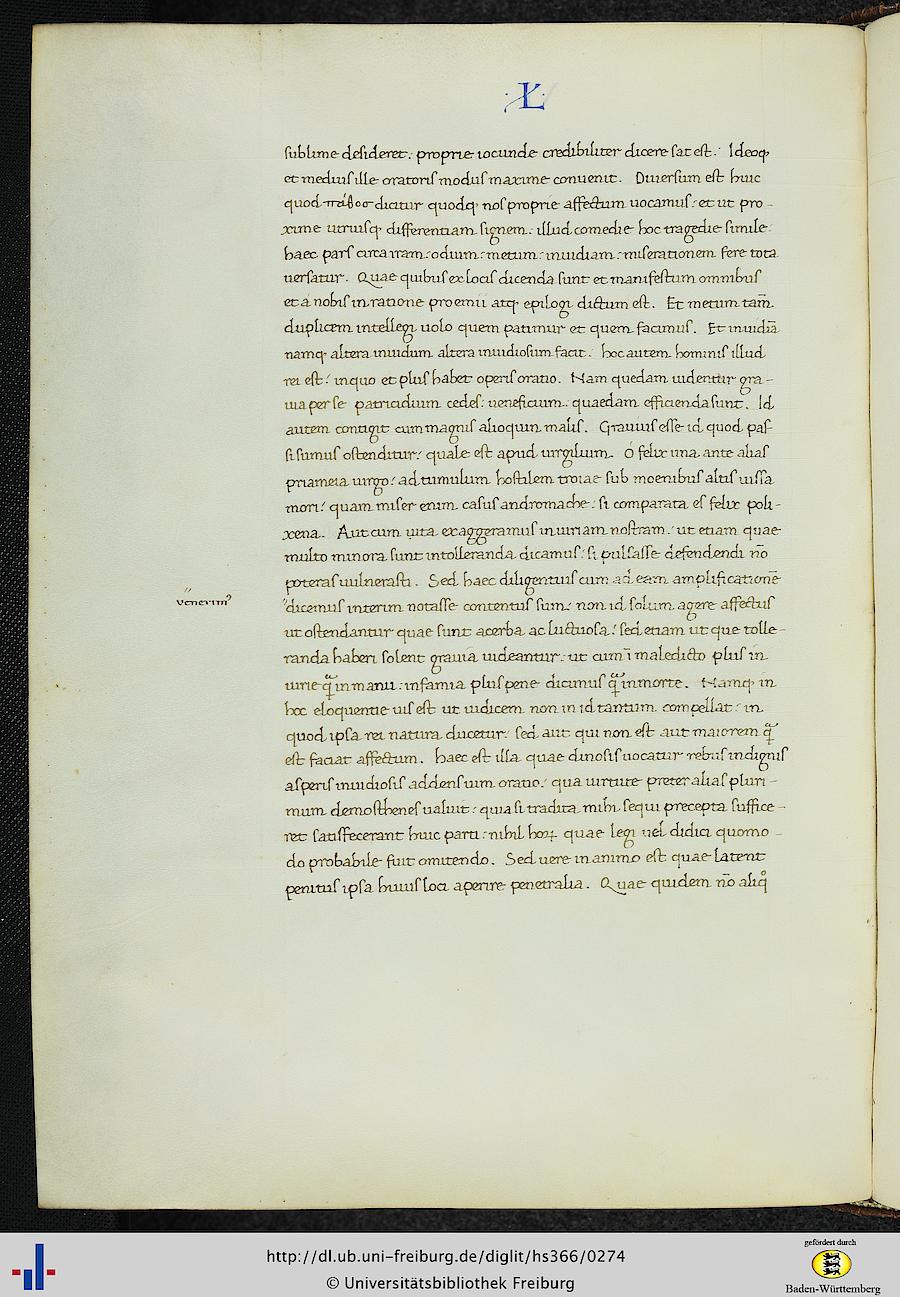 ·L·
sublime desideret. proprie iocunde credibiliter dicere sat est. Ideoq;
et medius ille oratoris modus maxime conuenit. Diuersum est huic
quod πάθος dicitur quodq; nos proprie affectum uocamus: et ut pro-
xime utriusq; differentiam signem: illud comedie hoc tragedie simile:
haec pars circa iram: odium: metum: inuidiam: miserationem fere tota
uersatur. Quae quibus ex locis dicenda sunt et manifestum omnibus
et a nobis in ratione proemii atq; epilogi dictum est. Et metum tam̄
duplicem intellegi uolo quem patimur et quem facimus. Et inuidiā
namq; altera inuidum altera inuidiosum facit: hoc autem hominis illud
rei est: in quo et plus habet operis oratio. Nam quedam uidentur gra-
uia per se patricidium cedes: ueneficium: quaedam efficienda sunt. Id
autem contigit cum magnis alioquin malis. Grauius esse id quod pas
si sumus ostenditur: quale est apud uirgilium. O felix una ante alias
priameia uirgo: ad tumulum hostilem troiae sub moenibus altis iussa
mori: quam miser enim casus andromache: si comparata ei felix poli-
xena. Aut cum uita exaggeramus iniuriam nostram: ut etiam quae
multo minora sunt intolleranda dicamus: si pulsasse defendendi nō
poteras uulnerasti. Sed haec diligentius cum ad eam amplificationē
venerim⁹
dicemus interim notasse contentus sum: non id solum agere affectus
ut ostendantur quae sunt acerba ac luctuosa: sed etiam ut que tolle-
randa haberi solent grauia uideantur: ut cum ī maledicto plus in
iurie qᷓ in manu: infamia plus pene dicimus qᷓ in morte. Namq; in
hoc eloquentie uis est ut iudicem non in id tantum compellat: in
quod ipsa rei natura ducetur: sed aut qui non est aut maiorem qᷓ
est faciat affectum. haec est illa quae dinosis uocatur rebus indignis
asperis inuidiosis addens uim oratio: qua uirtute preter alias pluri-
mum demosthenes ualuit: quia si tradita mihi sequi precepta suffice-
ret satisfecerant huic parti: nihil hoꝝ quae legi uel didici quomo-
do probabile fuit omitendo. Sed uere in animo est quae latent
penitus ipsa huius loci aperire penetralia. Quae quidem nō aliqͦ
http://dl.ub.uni-freiburg.de/diglit/hs366/0274
© Universitätsbibliothek Freiburg
gefördert durch
Baden-Württemberg